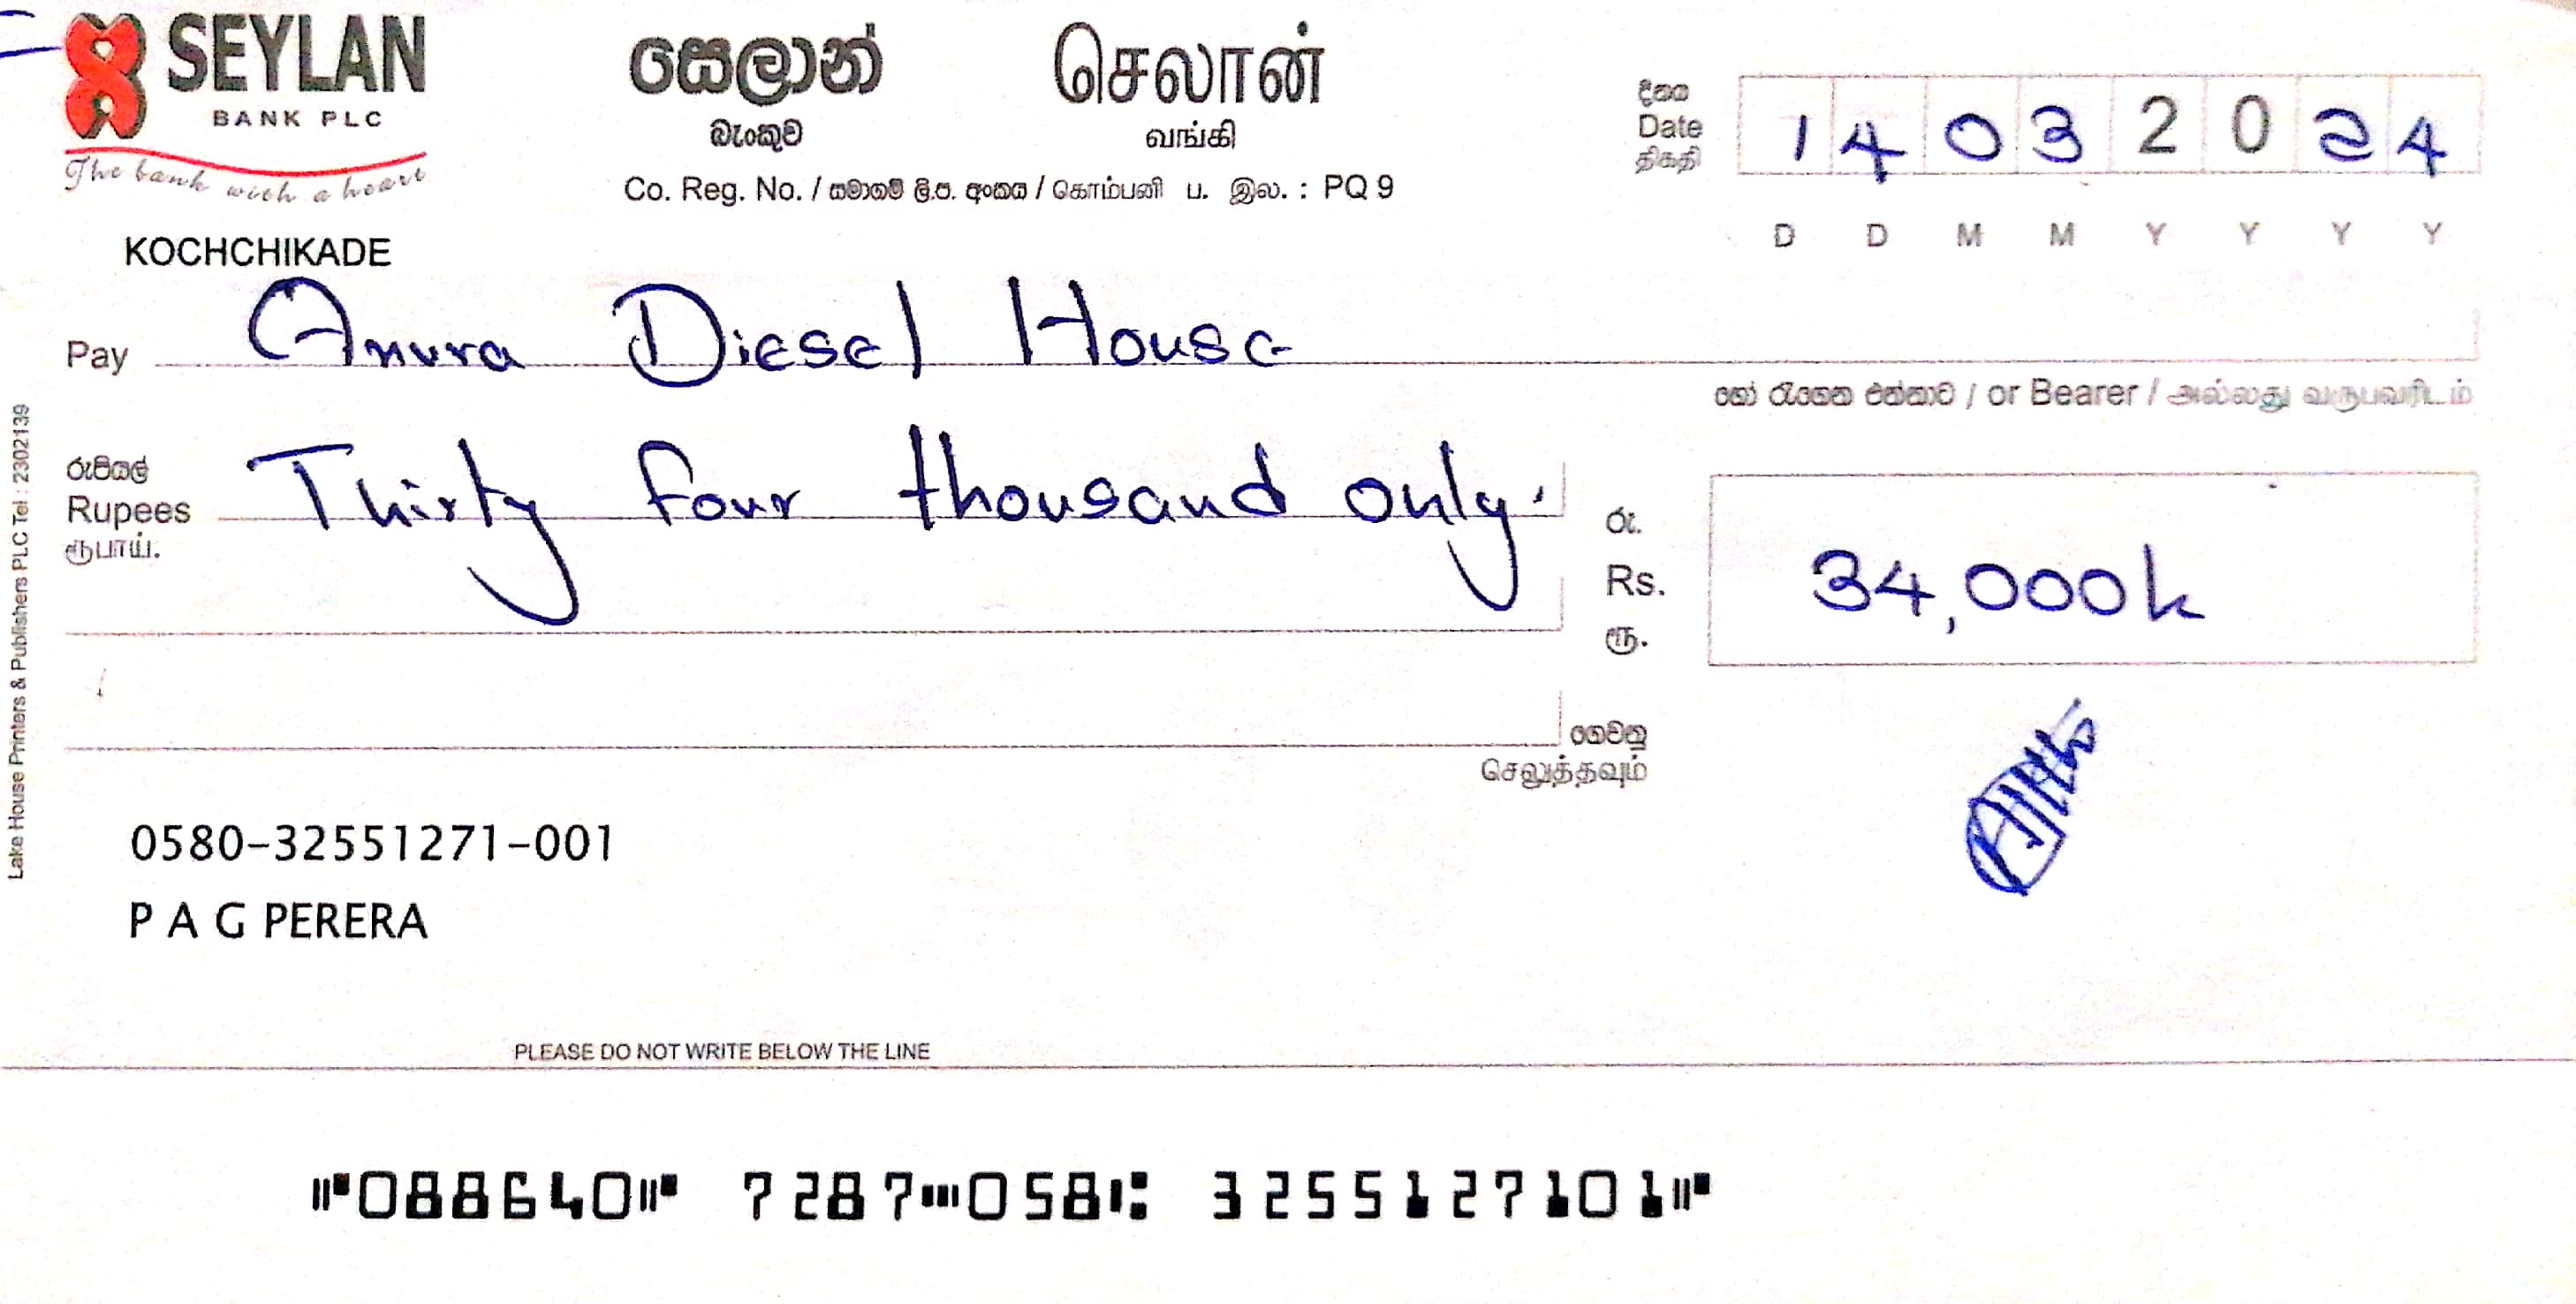 SEYLAN
BANK PLC
The bank with a heart
සෙලාන්
බැංකුව
செலான்
வங்கி
Co. Reg. No. / සමාගම් ලි.ප. අංකය / கொம்பனி ப. இல. : PQ 9
දිනය
Date
திகதி
1 4 0 3 2 0 2 4
D D M M Y Y Y Y
KOCHCHIKADE
Pay Anura Diesel House
හෝ රැගෙන එන්නාට / or Bearer / அல்லது வருபவரிடம்
රුපියල්
Rupees Thirty four thousand only.
ரூபாய்.
රු.
Rs. 34,000
ரூ.
ගෙවනු
செலுத்தவும்
0580-32551271-001
P A G PERERA
Lake House Printers & Publishers PLC Tel : 2302139
PLEASE DO NOT WRITE BELOW THE LINE
⑈088640⑈ 7287⑉058⑆ 325512710 1⑈